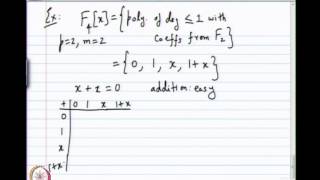 Ex: F₄[x] = {poly. of deg ≤ 1 with
p=2, m=2 coeffs from F₂}
= {0, 1, x, 1+x}
x + x = 0 addition: easy
+ | 0 1 x 1+x
0
1
x
1+x